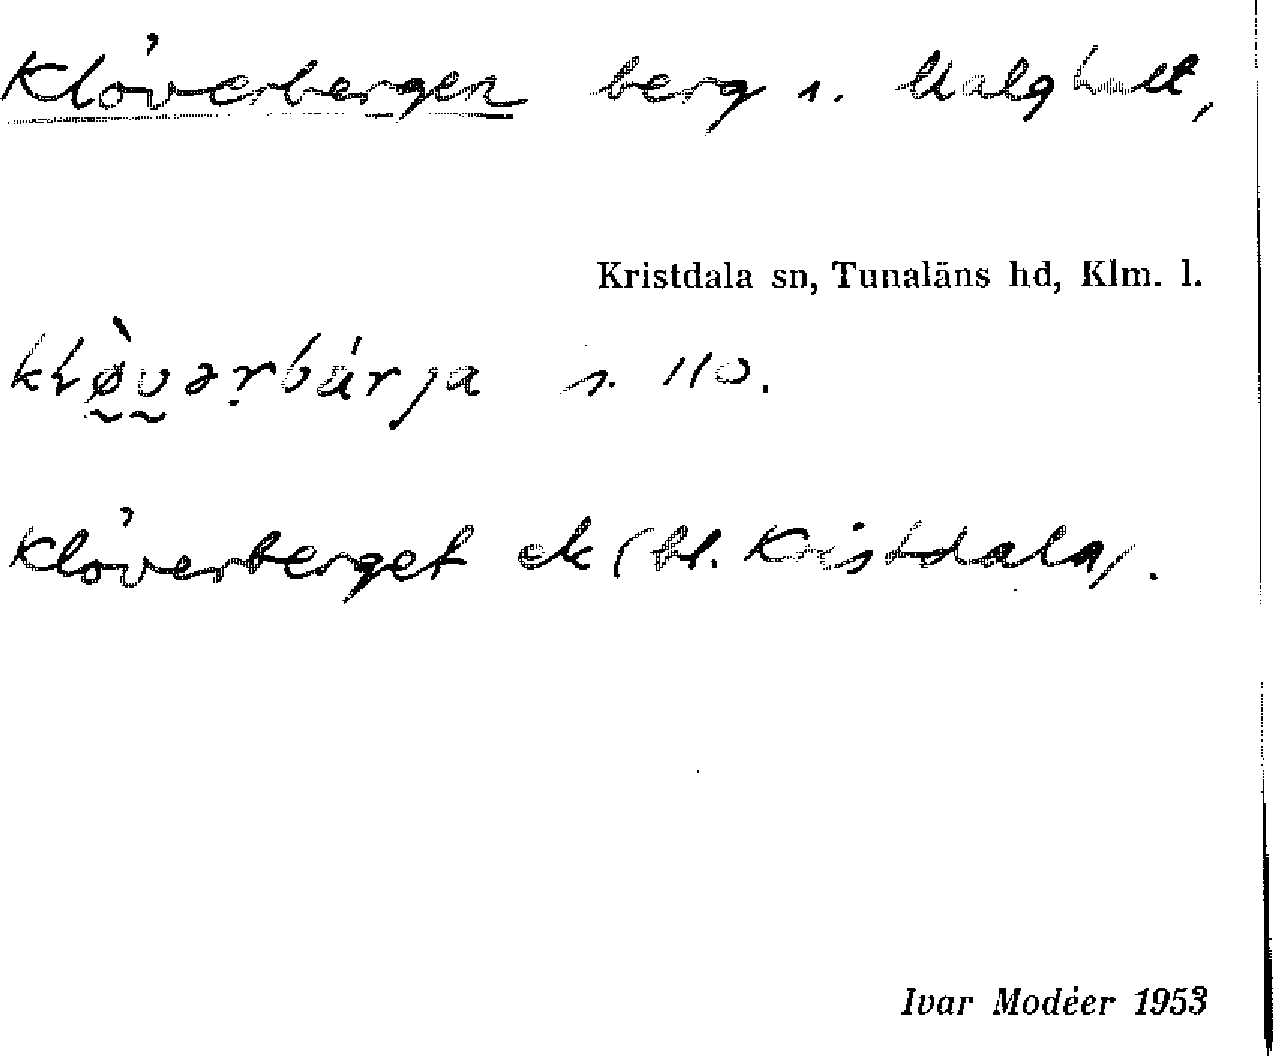 Klöverbergen berg s. Malghult,
Kristdala sn, Tunaläns hd, Klm. l.
s. 110.
Klöverberget ek (bl. Kristdala).
Ivar Modéer 1953